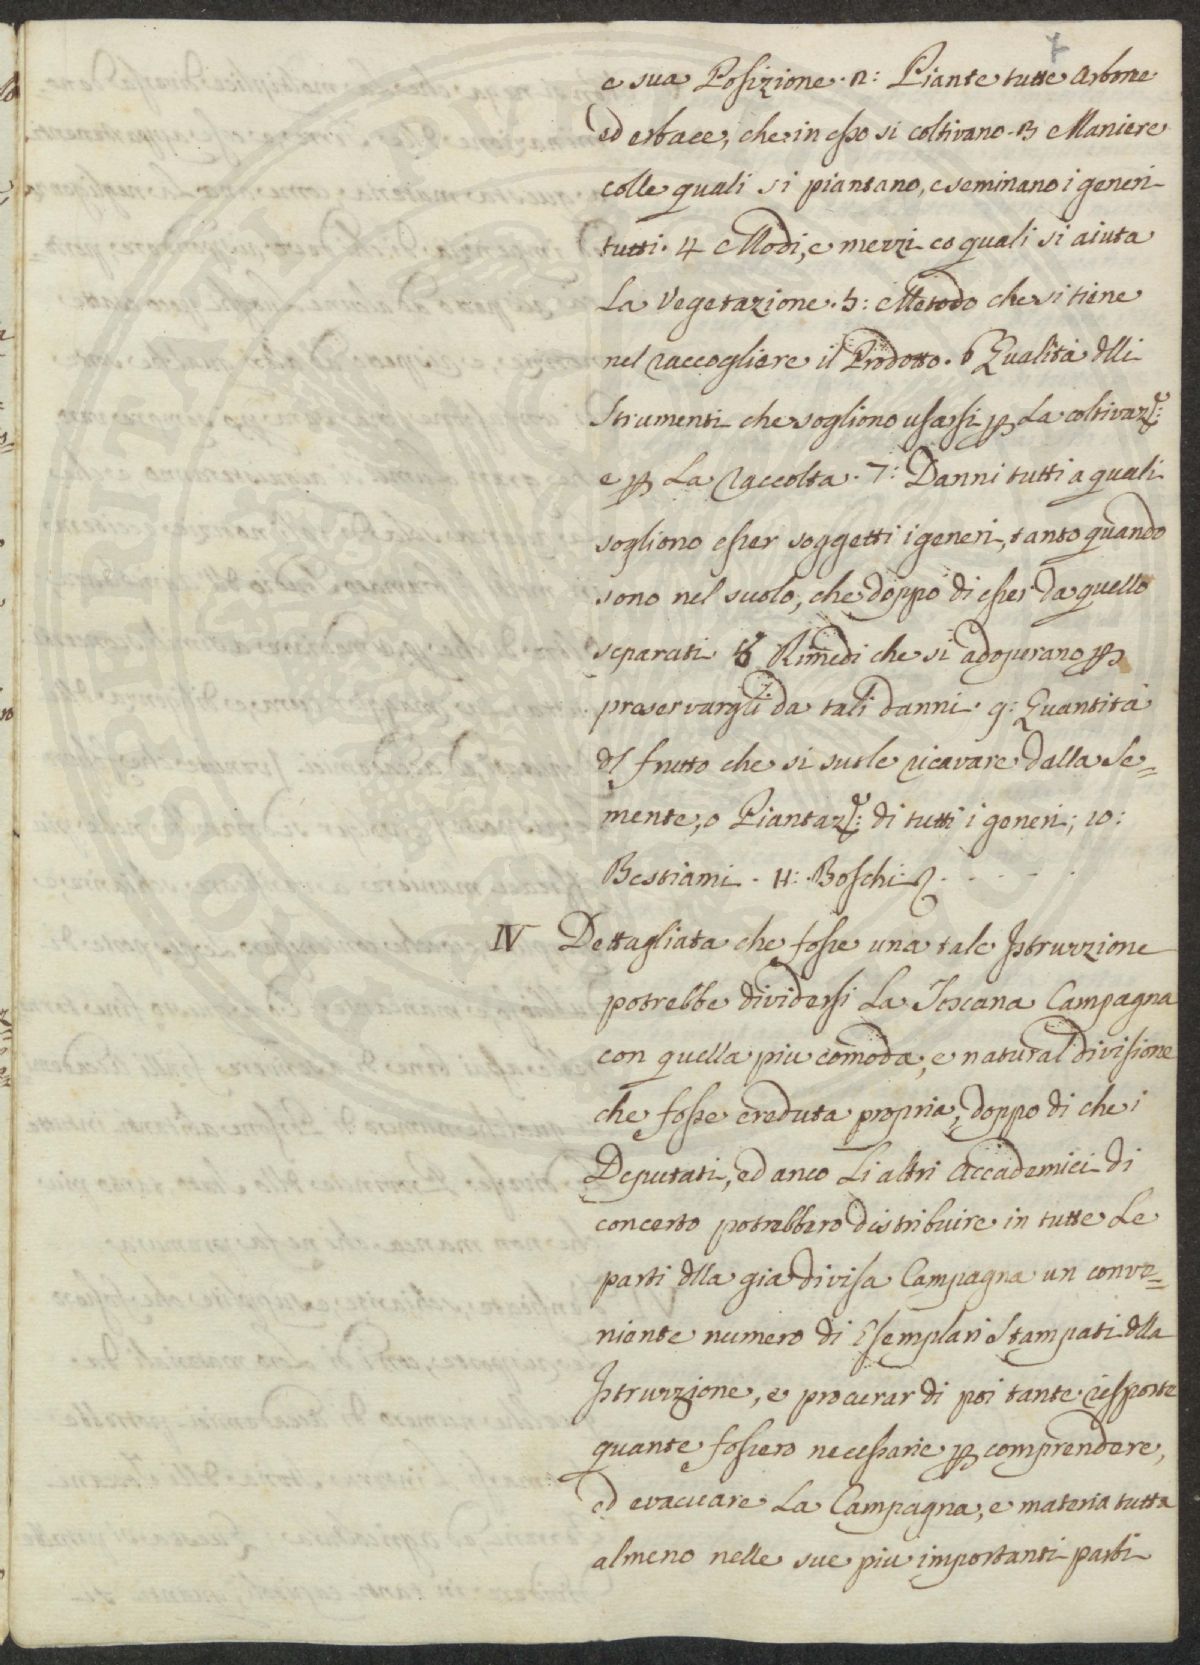 7
e sua Posizione. 2: Piante tutte arboree
ed erbacee, che in esso si coltivano. 3 Maniere
colle quali si piantano, e seminano i generi
tutti. 4 Modi, e mezzi co quali si aiuta
La Vegetazione. 5: Metodo che si tiene
nel raccogliere il Prodotto. 6 Qualità dlli
Strumenti che sogliono usarsi p La coltivaz.e:
e p La raccolta. 7: Danni tutti a quali
sogliono esser soggetti i generi, tanto quando
sono nel suolo, che doppo di esser da quello
separati. 8 Rimedi che si adopurano p
preservargli da tali danni. 9: Quantità
dl frutto che si suole ricavare dalla Se=
mente, o Piantaz.e: di tutti i generi; 10:
Bestiami. 11: Boschi
IV Dettagliata che fosse una tale Istruzzione
potrebbe dividersi La Toscana Campagna
con quella piu comoda, e natural divisione
che fosse creduta propria; doppo di che i
Deputati, ed anco Li altri Accademici di
concerto potrebbero distribuire in tutte Le
parti dlla gia divisa Campagna un conve=
niente numero di Esemplari Stampati dlla
Istruzzione, e procurar di poi tante risposte
quante fossero necessarie p comprendere,
ed evacuare La Campagna, e materia tutta
almeno nelle sue piu importanti parti